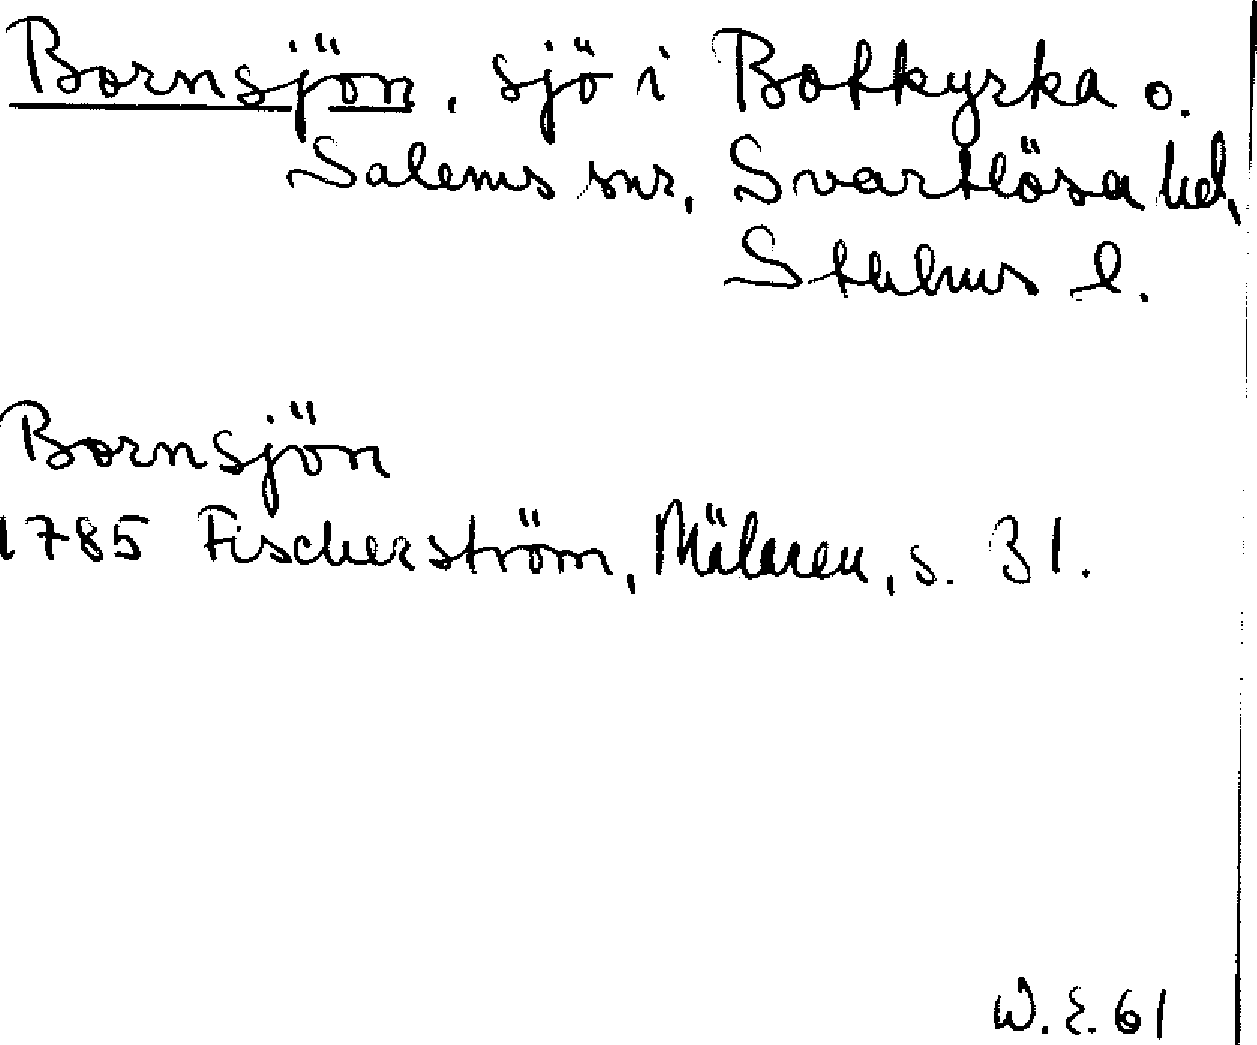 Bornsjön, sjö i Botkyrka o.
Salems snr, Svartlösa hd,
Sthlms l.
Bornsjön
1785 Fischerström, Mälaren, s. 31.
W. E. 61